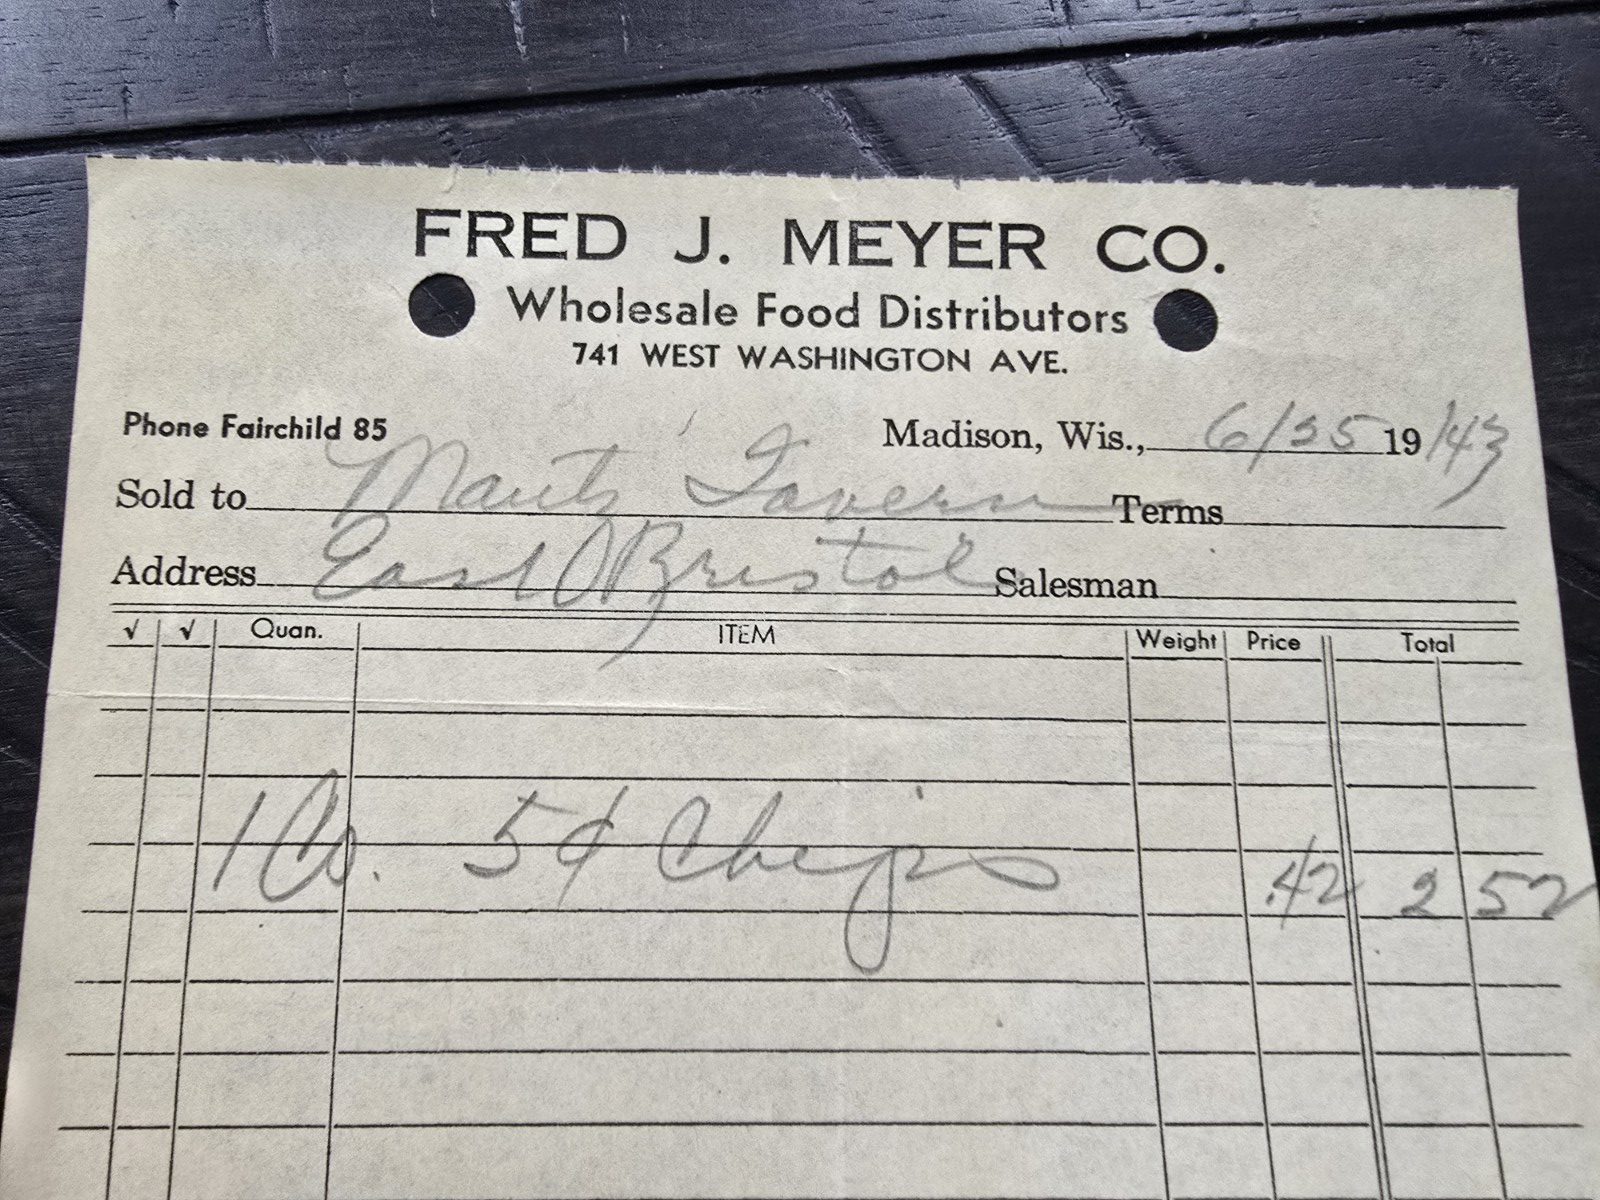 FRED J. MEYER CO.
Wholesale Food Distributors
741 WEST WASHINGTON AVE.
Phone Fairchild 85
Madison, Wis., 6/25 19/43
Sold to Mautz Tavern Terms
Address East Bristol Salesman
√ √ Quan. ITEM Weight Price Total
1 Cs. 5¢ Chips .42 2 52